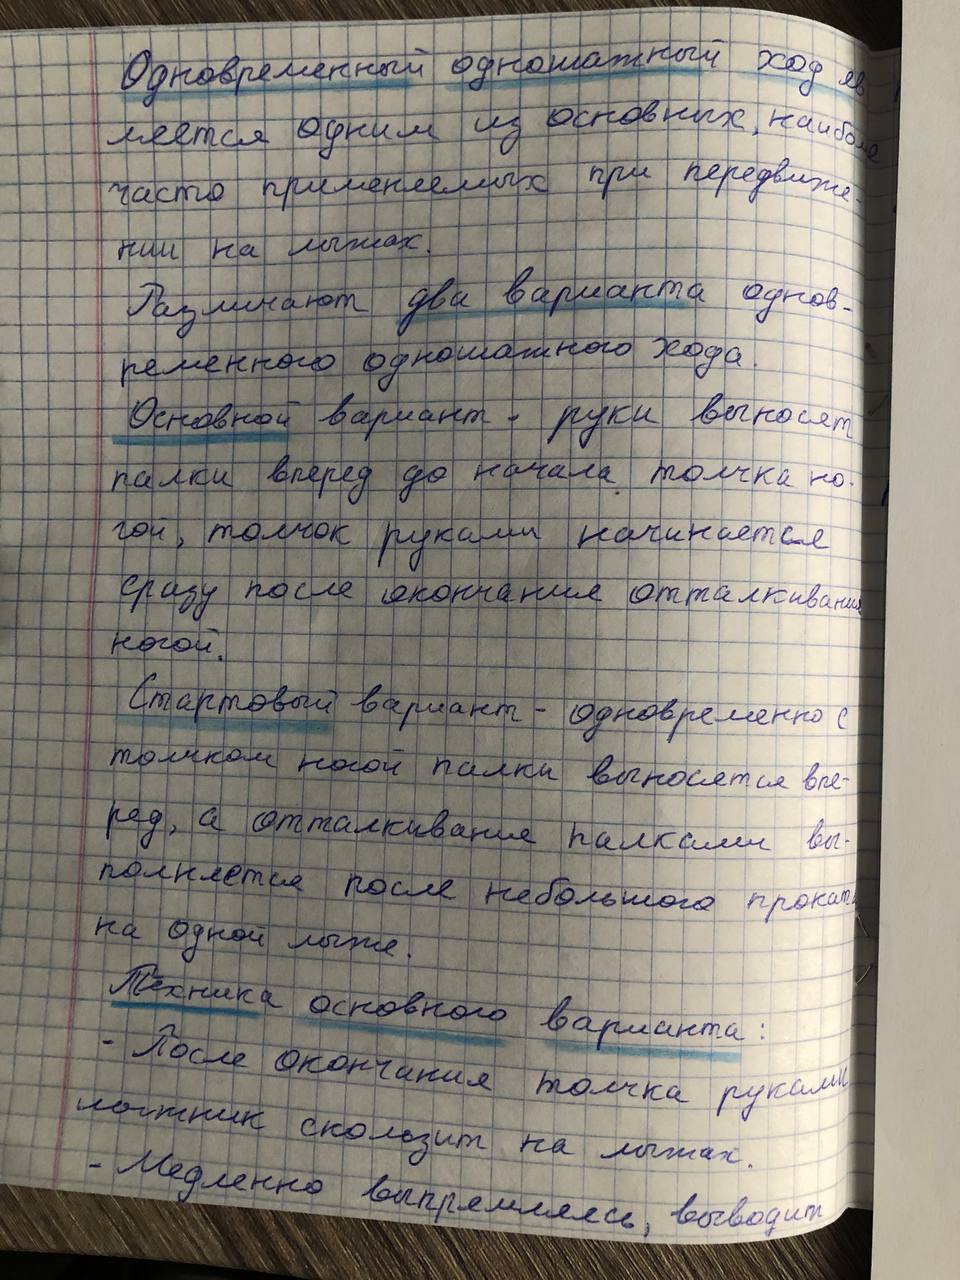 Одновременный одношажный ход яв
ляется одним из основных, наиболее
часто применяемых при передвиже-
нии на лыжах.
Различают два варианта однов-
ременного одношажного хода.
Основной вариант - руки выносят
палки вперед до начала толчка но-
гой, толчок руками начинается
сразу после окончания отталкивания
ногой.
Стартовый вариант - одновременно с
толчком ногой палки выносятся впе-
ред, а отталкивание палками вы-
полняется после небольшого проката
на одной лыже.
Техника основного варианта:
- После окончания толчка руками
лыжник скользит на лыжах.
- Медленно выпрямляясь, выводит